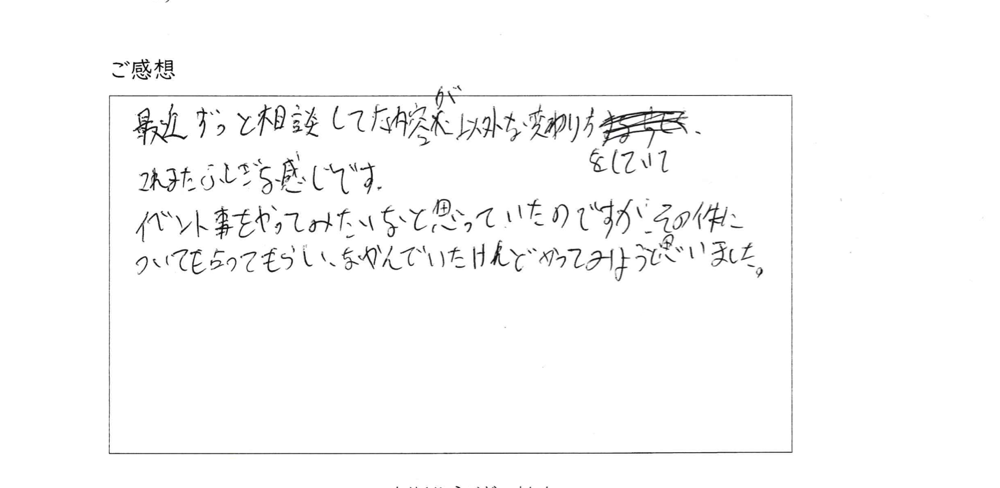 ご感想
最近ずっと相談してた内容が以外な変わり方をしていて、
これまたふしぎな感じです。
イベント事をやってみたいなと思っていたのですが、その件に
ついても占ってもらい、なやんでいたけれどやってみようと思いました。